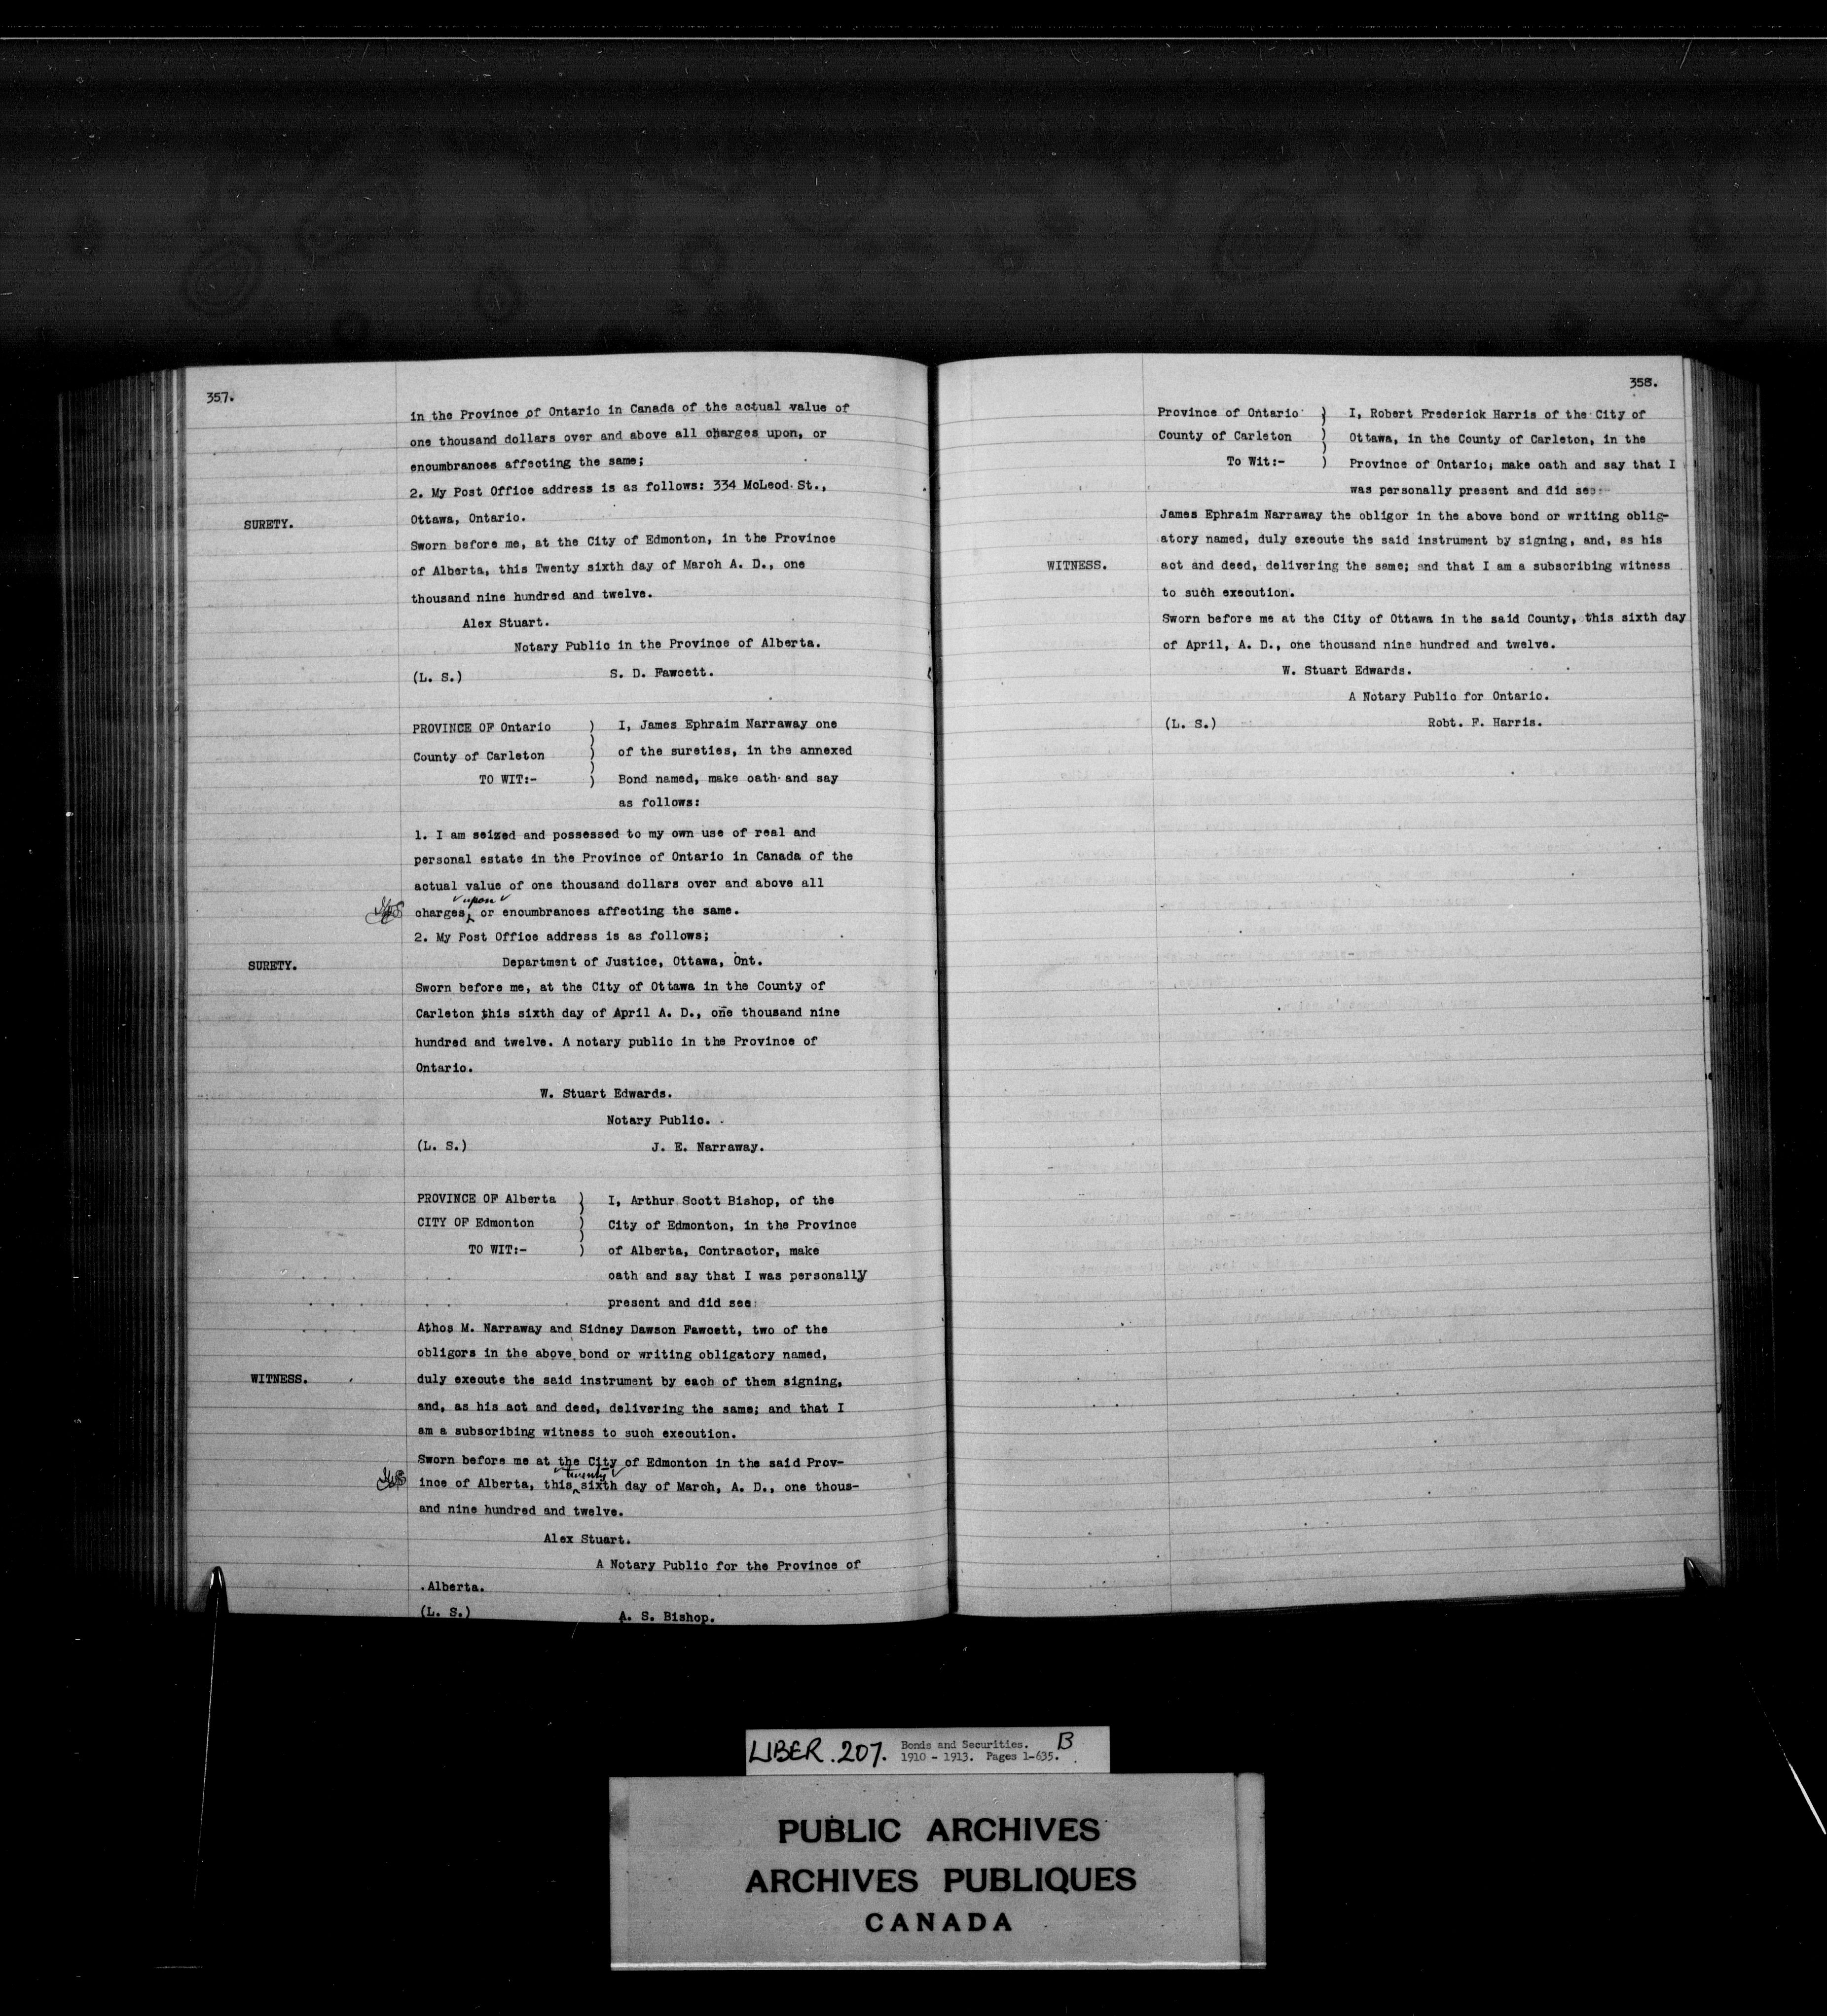 357.
in the Province of Ontario in Canada of the actual value of
one thousand dollars over and above all charges upon, or
encumbrances affecting the same;
2. My Post Office address is as follows: 334 McLeod St.,
SURETY.
Ottawa, Ontario.
Sworn before me, at the City of Edmonton, in the Province
of Alberta, this Twenty sixth day of March A. D., one
thousand nine hundred and twelve.
Alex Stuart.
Notary Public in the Province of Alberta.
(L. S.) S. D. Fawcett.
PROVINCE OF Ontario ) I, James Ephraim Narraway one
)
County of Carleton ) of the sureties, in the annexed
)
TO WIT:- ) Bond named, make oath and say
as follows:
1. I am seized and possessed to my own use of real and
personal estate in the Province of Ontario in Canada of the
actual value of one thousand dollars over and above all
upon
charges, or encumbrances affecting the same.
2. My Post Office address is as follows;
SURETY. Department of Justice, Ottawa, Ont.
Sworn before me, at the City of Ottawa in the County of
Carleton this sixth day of April A. D., one thousand nine
hundred and twelve. A notary public in the Province of
Ontario.
W. Stuart Edwards.
Notary Public.
(L. S.) J. E. Narraway.
PROVINCE OF Alberta ) I, Arthur Scott Bishop, of the
)
CITY OF Edmonton ) City of Edmonton, in the Province
)
TO WIT:- ) of Alberta, Contractor, make
oath and say that I was personally
present and did see:
Athos M. Narraway and Sidney Dawson Fawcett, two of the
obligors in the above bond or writing obligatory named,
WITNESS. duly execute the said instrument by each of them signing,
and, as his act and deed, delivering the same; and that I
am a subscribing witness to such execution.
Sworn before me at the City of Edmonton in the said Prov-
twenty
ince of Alberta, this sixth day of March, A. D., one thous-
and nine hundred and twelve.
Alex Stuart.
A Notary Public for the Province of
Alberta.
(L. S.) A. S. Bishop.
358.
Province of Ontario ) I, Robert Frederick Harris of the City of
County of Carleton ) Ottawa, in the County of Carleton, in the
)
To Wit:- ) Province of Ontario; make oath and say that I
was personally present and did see:
James Ephraim Narraway the obligor in the above bond or writing oblig-
atory named, duly execute the said instrument by signing, and, as his
WITNESS. act and deed, delivering the same; and that I am a subscribing witness
to such execution.
Sworn before me at the City of Ottawa in the said County, this sixth day
of April, A. D., one thousand nine hundred and twelve.
W. Stuart Edwards.
A Notary Public for Ontario.
(L. S.) Robt. F. Harris.
LIBER. 207. Bonds and Securities. B
1910 - 1913. Pages 1-635.
PUBLIC ARCHIVES
ARCHIVES PUBLIQUES
CANADA